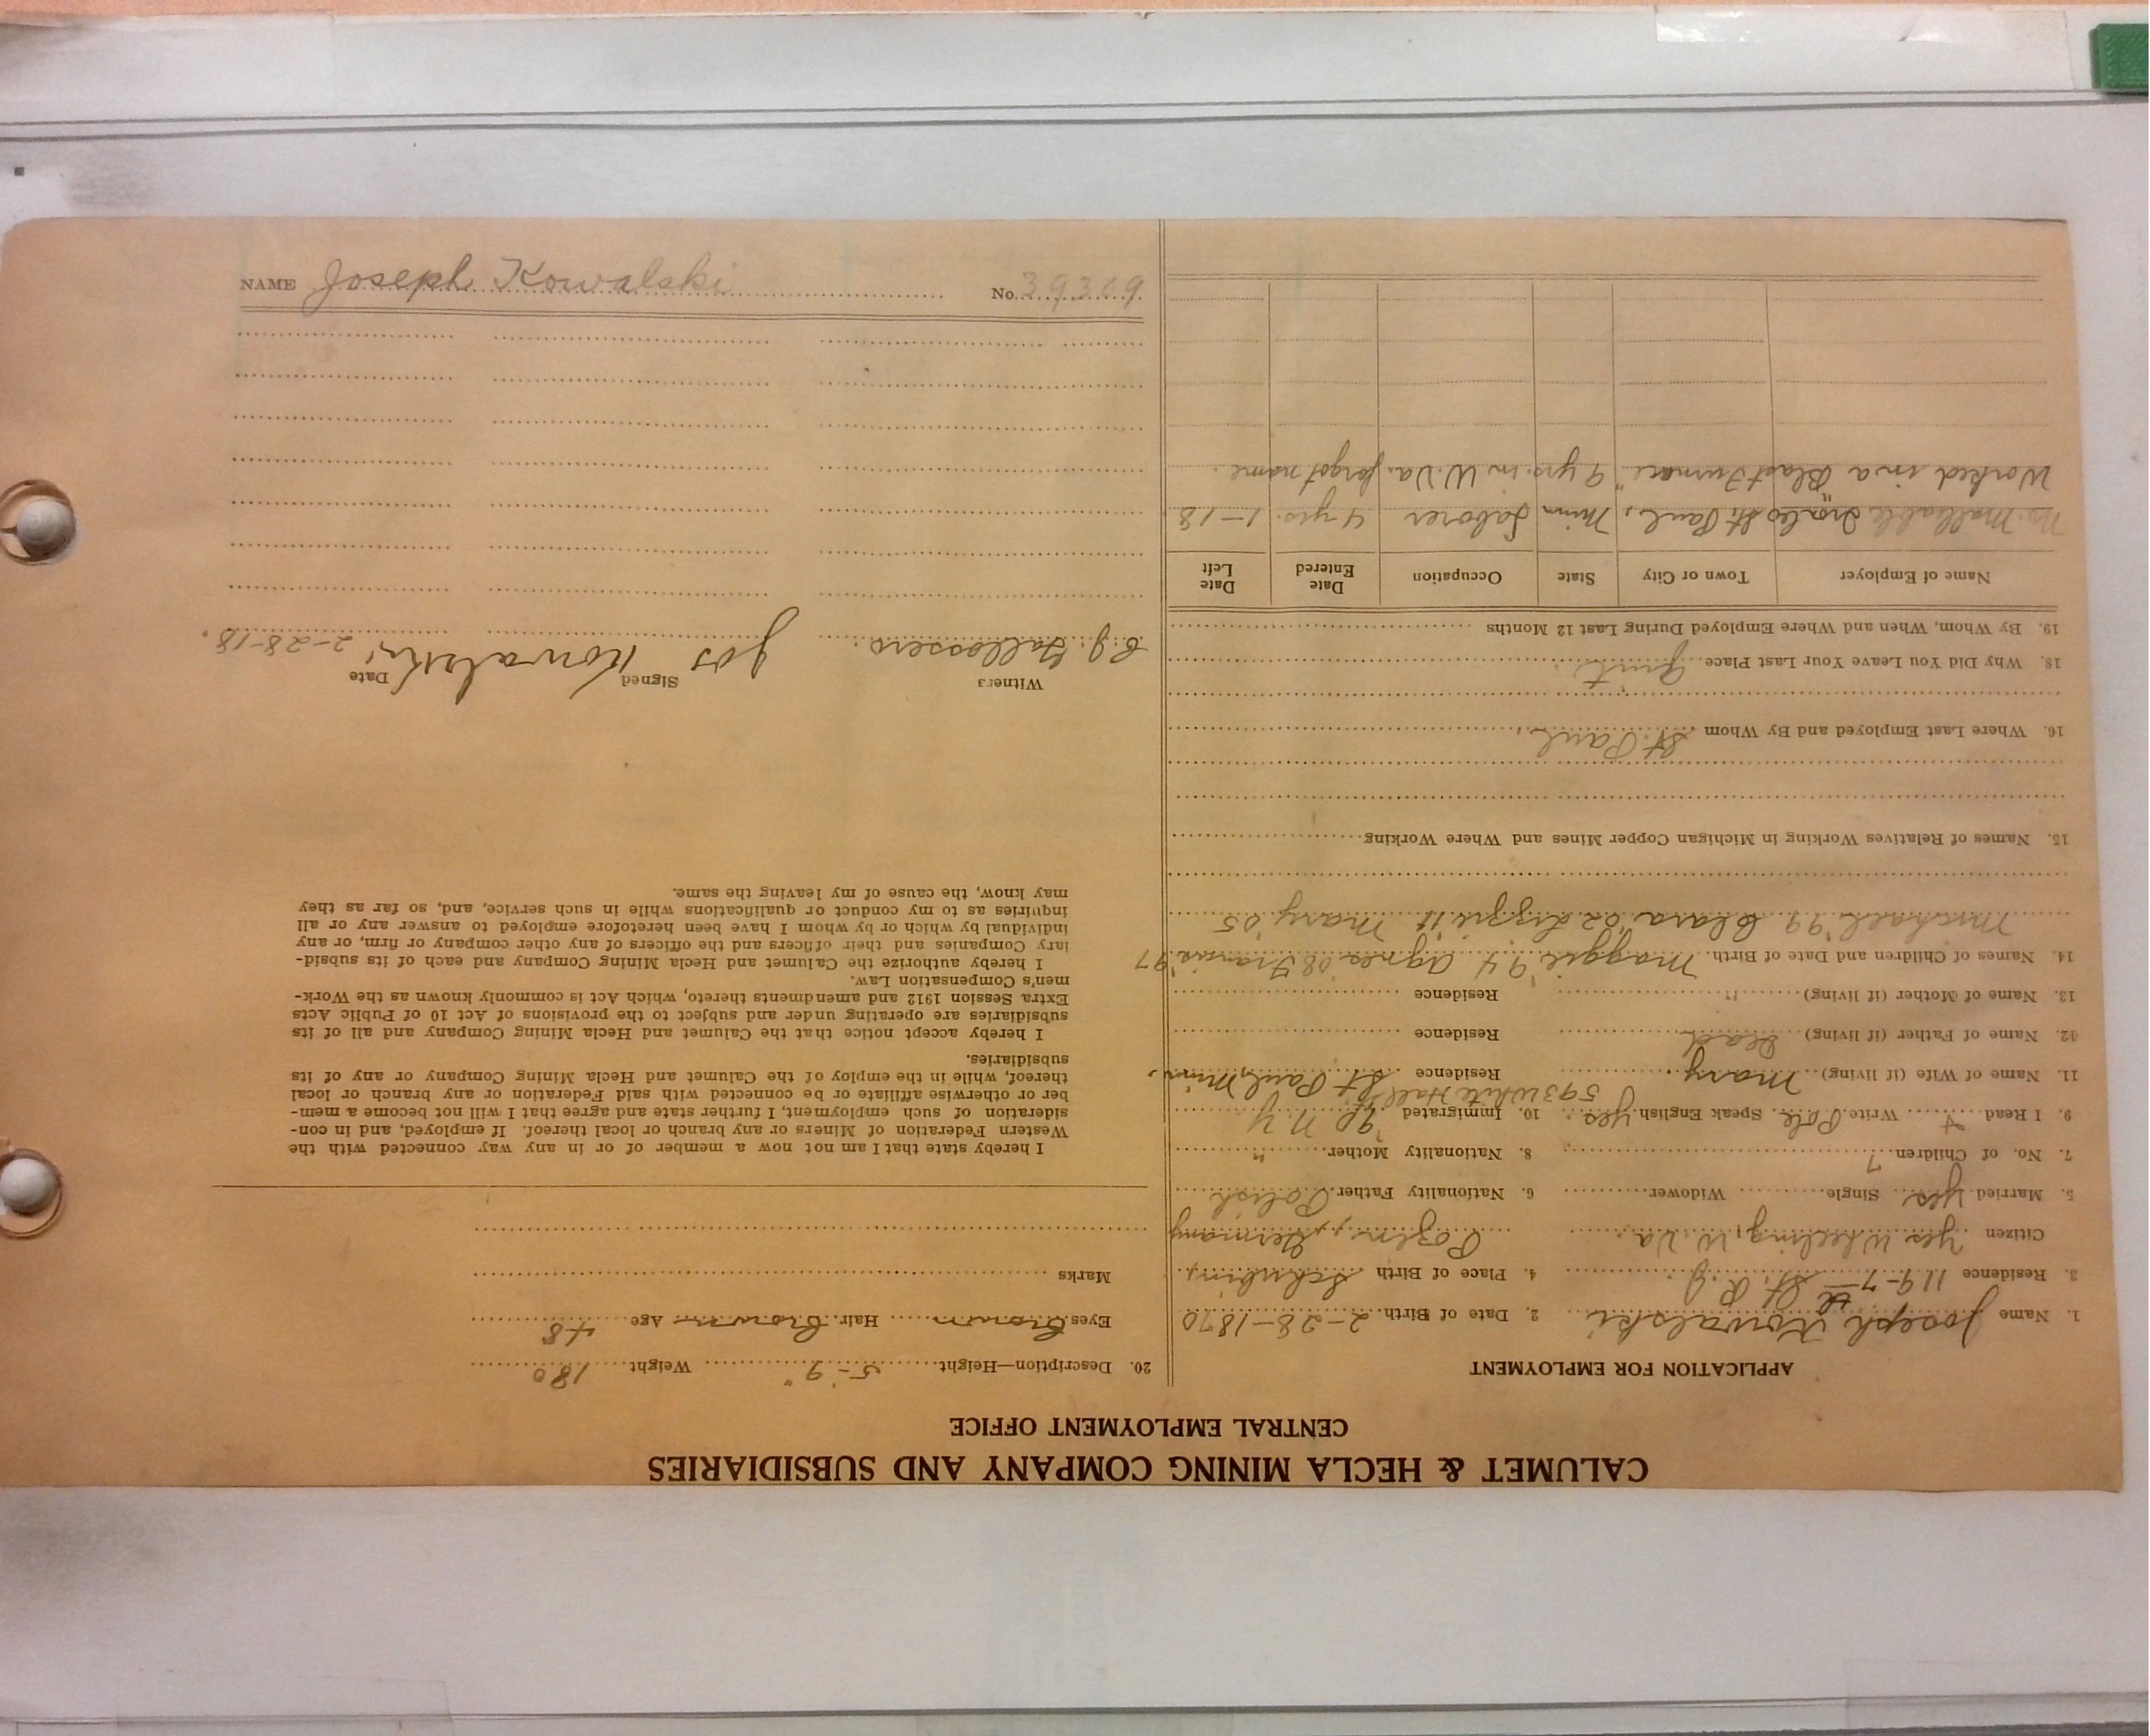 CALUMET & HECLA MINING COMPANY AND SUBSIDIARIES
CENTRAL EMPLOYMENT OFFICE
APPLICATION FOR EMPLOYMENT
1. Name Joseph Kowalski 2. Date of Birth 2-28-1870
3. Residence 119-7th St. R.J. 4. Place of Birth Schubin,
Citizen Yes Wheeling, W. Va. Pozen, Germany
5. Married Yes Single Widower 6. Nationality Father Polish
7. No. of Children 7 8. Nationality Mother "
9. I Read Write Pole Speak English Yes 10. Immigrated '90 N.Y.
593 White Hall St
11. Name of Wife (if living) Mary Residence St Paul, Minn.
12. Name of Father (if living) Dead Residence
13. Name of Mother (if living) " Residence
14. Names of Children and Date of Birth Maggie '94 Agnes '08 Francis '97
Michael '99 Clara '02 Lizzie '11 Mary '05
15. Names of Relatives Working in Michigan Copper Mines and Where Working
16. Where Last Employed and By Whom St. Paul
18. Why Did You Leave Your Last Place Quit
19. By Whom, When and Where Employed During Last 12 Months
Name of Employer Town or City State Occupation Date Entered Date Left
Malleable St. Paul, Minn Laborer 4 yrs. 1-18
Worked in a "Blast Furnace" 9 yrs. in W. Va. forgot name.
20. Description—Height 5'-9" Weight 180
Eyes Brown Hair Brown Age 48
Marks
I hereby state that I am not now a member of or in any way connected with the
Western Federation of Miners or any branch or local thereof. If employed, and in con-
sideration of such employment, I further state and agree that I will not become a mem-
ber or otherwise affiliate or be connected with said Federation or any branch or local
thereof, while in the employ of the Calumet and Hecla Mining Company or any of its
subsidiaries.
I hereby accept notice that the Calumet and Hecla Mining Company and all of its
subsidiaries are operating under and subject to the provisions of Act 10 of Public Acts
Extra Session 1912 and amendments thereto, which Act is commonly known as the Work-
men's Compensation Law.
I hereby authorize the Calumet and Hecla Mining Company and each of its subsid-
iary Companies and their officers and the officers of any other company or firm, or any
individual by which or by whom I have been heretofore employed to answer any or all
inquiries as to my conduct or qualifications while in such service, and, so far as they
may know, the cause of my leaving the same.
Witness Signed Date
Jos Kowalski 2-28-18.
NAME Joseph Kowalski No. 39309